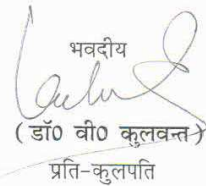 भवदीय
( डॉ0 वी0 कुलवन्त )
प्रति-कुलपति